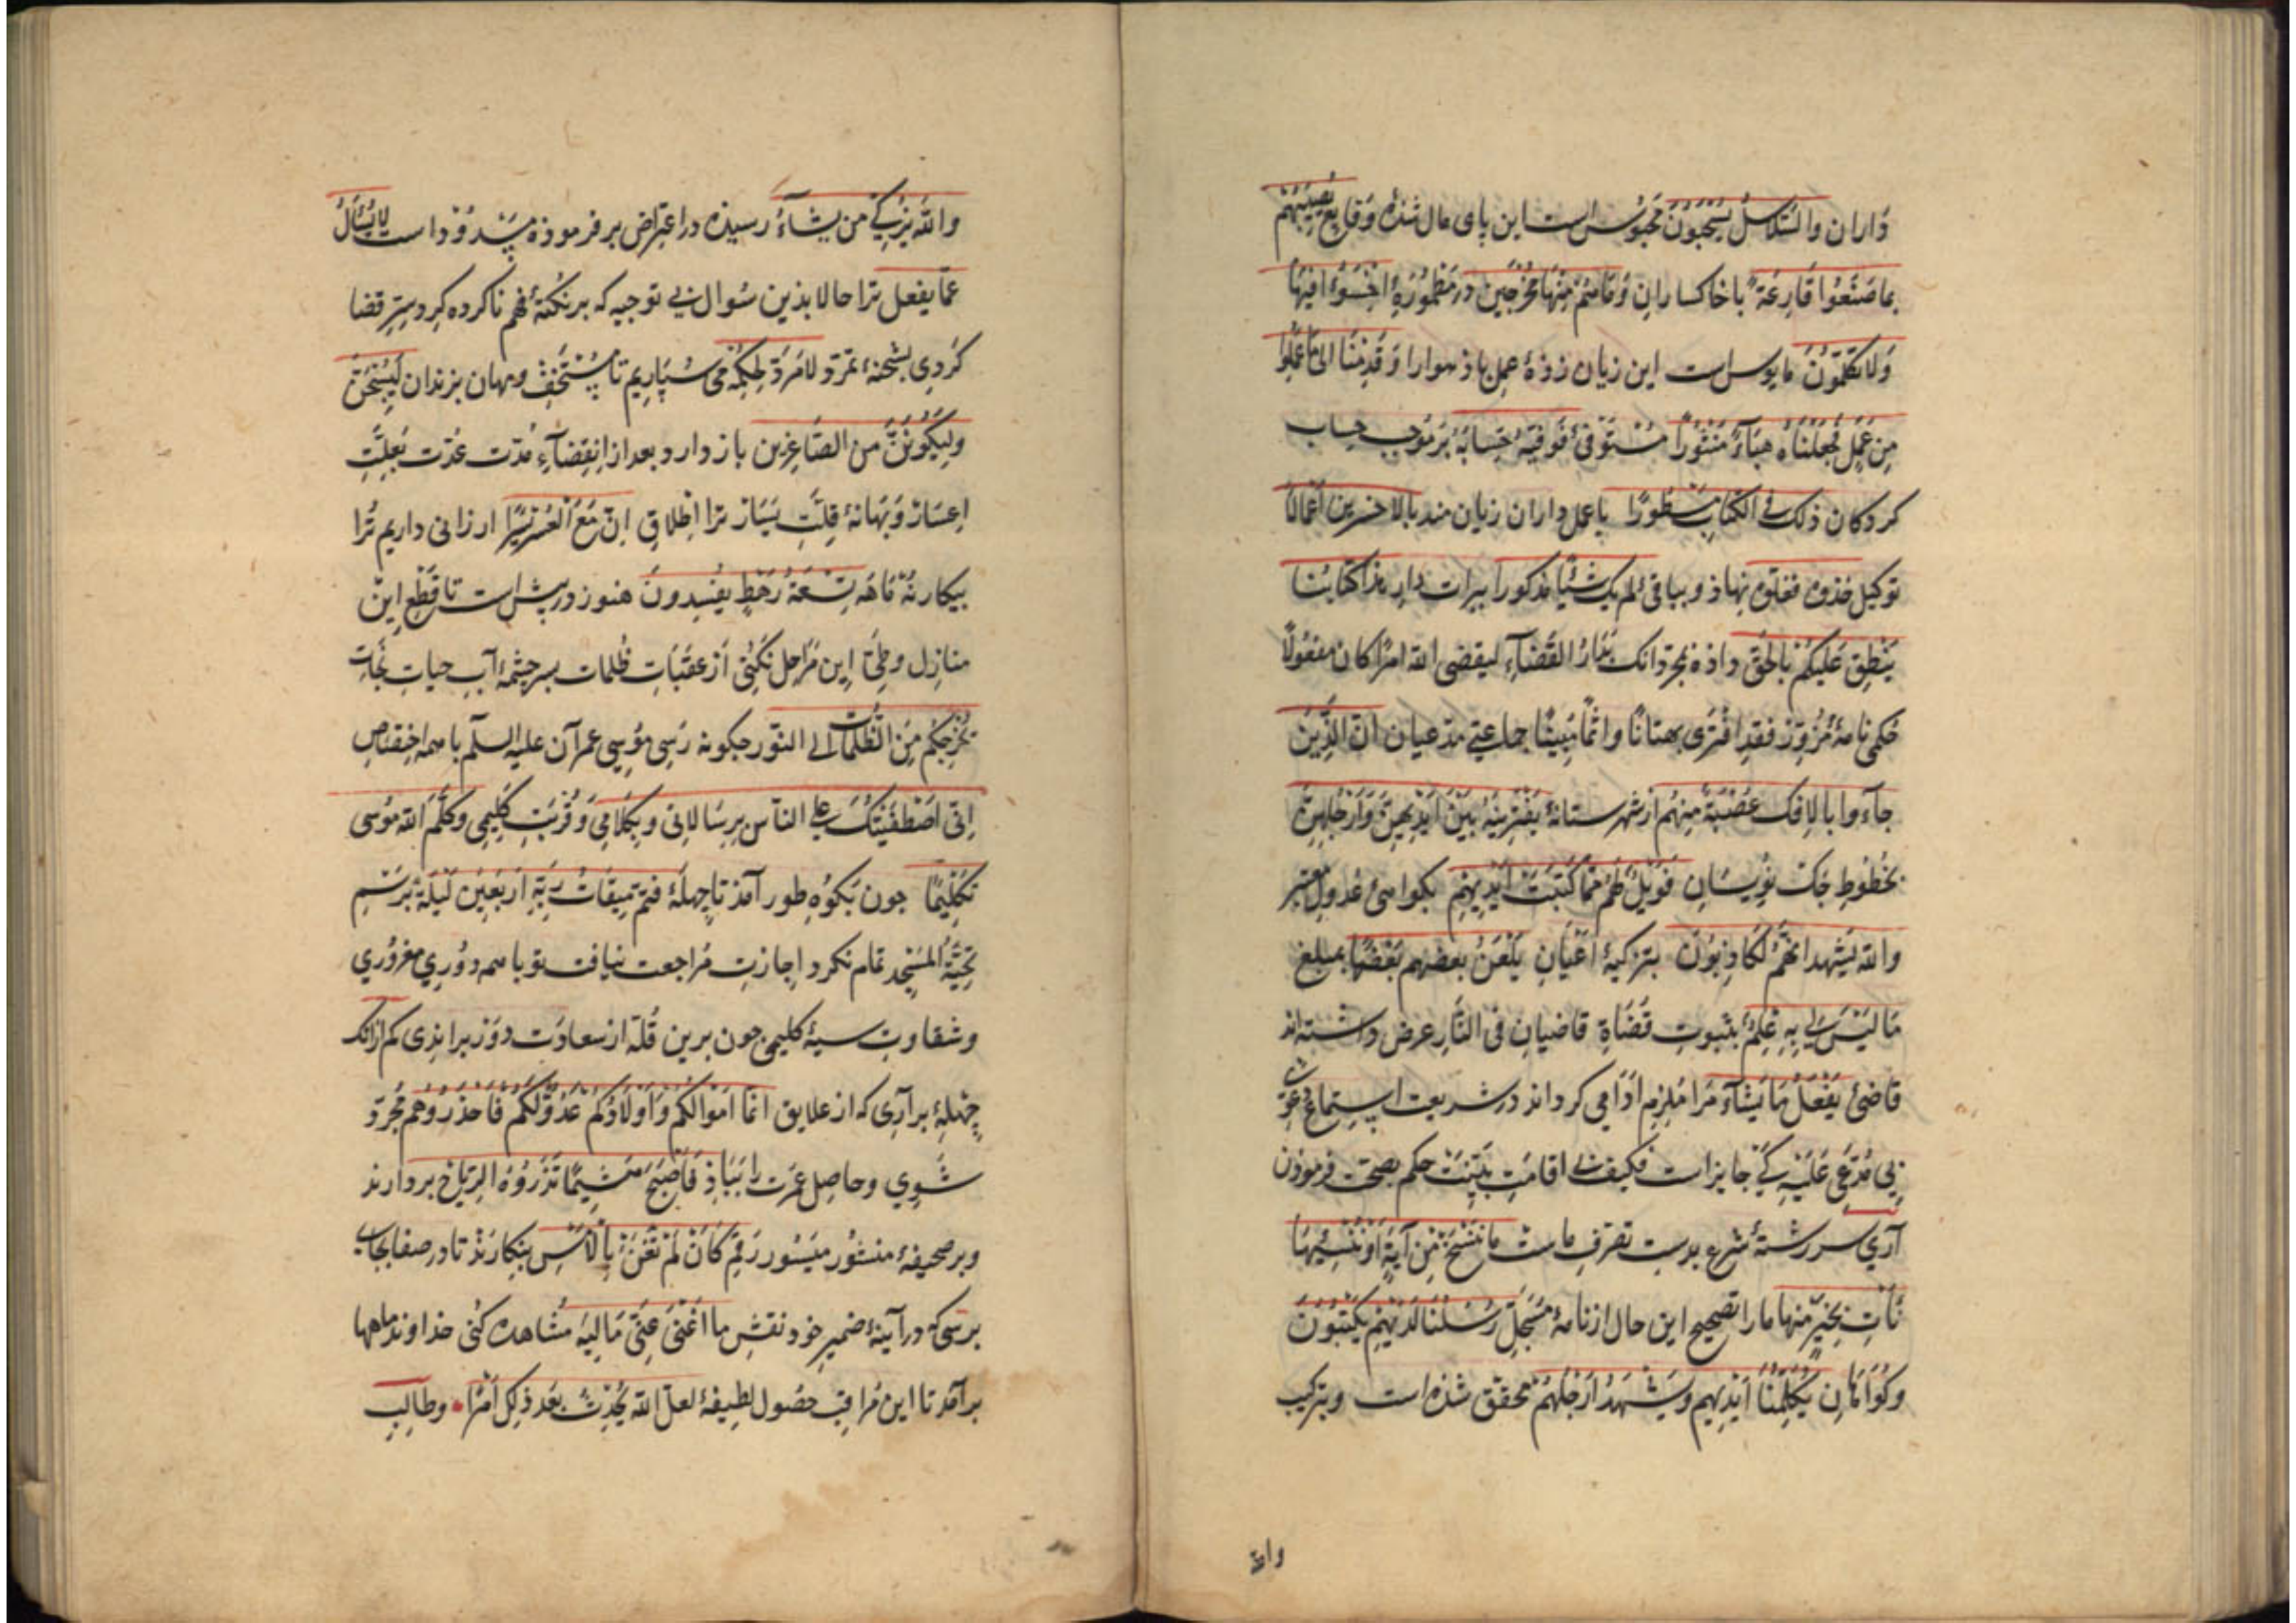 داران والسَّلاسلُ یُسْحَبُونَ محبوس است این پای مال شذهٔ وقایع تُصِیبُهُمْ
بما صَنَعُوا قَارِعَةٌ با خاکساران وَمَاهُمْ مِنْهَا بِمُخْرَجِین در مَطْمُورَهٔ اِخْسَؤُا فیها
وَلا تُکَلِّمُونِ مایوس است این زیان زدهٔ عمل باذ هوارا وَقَدِمْنَا الیٰ مَا عَمِلُوا
مِنْ عَمَلٍ فَجَعَلْنَاهُ هَبَآءً مَنْثُورًا مستوفی فَوَفّیٰهُ حِسَابَهُ بر موجب حساب
کردکان ذلک فی الکتاب مسطورًا با عمل داران زیان مند بالاخسرین اعمالاً
توکیل خذوه فغلّوه نهاذ و بباقی لم یک شیئًا مذکورا ببرات دار هذا کتابنا
یَنْطِقُ عَلَیْکُمْ بِالحَقِّ داذه بمجرد انک القَضَآءِ لیقضی الله امرًا کان مفعولاً
حُکمی نامهٔ مُزَوَّر فقد افتری بهتانًا واثمًا مُبینًا جماعتی مدعیان انّ الَّذِینَ
جآءوا بالافک عُصْبَةٌ مِنْهُم از شهرستانهٔ یَفْتَرِینَهُ بَیْنَ اَیْدِیهِنَّ وَاَرْجُلِهِنَّ
بخُطُوطِ جَک نویسان فَوَیْلٌ لَهُمْ مِمَّا کَتَبَتْ اَیْدِیهِمْ بکواهی عُدول معتبر
والله یَشْهد انَّهُمْ لَکاذِبُونَ بتزکیهٔ اَعْیَانِ یَلْعَنُ بعضهم بَعْضًا بمبلغ
مَا لَیْسَ لی بِهِ عِلْمٌ بثبوت قُضَاةِ قاضیان فی النَّار عرض داشته اند
قاضیٔ یَفْعَلُ مَا یَشَآء مَرا مُلزم اَدَا می کرداند در شریعت استماع دعوی
بی مُدَّعی عَلَیْه کَیْ جایز است فکیف بی اقامتِ بیّنت حکم بصحت فرموذن
آری سر رشتهٔ شرع بدست تصرف ماست مانَنْسَخْ مِنْ آیَةٍ اَوْنُنْسِیْهَا
نَأتِ بِخَیْرٍ مِنْهَا مارا تصحیح این حال از نامهٔ مُسَجَّل رُسُلُنَا لَدَیْهِمْ یَکْتُبُونَ
وکُوَاهَانِ تُکَلِّمُنَا اَیْدِیهِمْ وَیَشْهَدُ اَرْجُلُهُمْ محقّق شذه است و بتزکیت
والله
والله یُزَکِّی من یشآءُ رسیده در اعتراض بر فرموذه مسدود است لایُسْأَلُ
عمّا یفعل ترا حالا بذین سُوال بی توجیه که بر نکتهٔ فهم ناکرده کرد سِرّ قضا
کردی بشحنهٔ تمرّد لامَرَدَّ لِحُکْمِهِ می سپاریم تا مُسْتَخِفّ و مهان بزندان لَیُسْجَنَنَّ
ولَیَکُونَنَّ من الصّاغِرین باز دارد و بعد از اِنقِضَآءِ مُدّت عُدّت بعلّتِ
اِعسَار وَبَهَانهٔ قلّتِ یَسَار ترا اِطْلاقِ اِنّ مَعَ العُسْرِ یُسْرًا ارزانی داریم تُرا
بیکار نُه مَاهَه تِسْعَةُ رَهْطٍ یُفْسِدُونَ هنوز در پیش است تا قَطْعِ این
منازل و طیِّ اِین مَراحِل نکُنی از عَقَبَاتِ ظُلمات بسر جشمهٔ آب حیات نجات
یُخْرِجُکُم مِنَ الظُّلُمَاتِ الی النّور جکونه رَسی مُوسی عمرآن علیه السلم با همه اختصاص
اِنّی اصْطَفَیْتُکَ علی النّاس بِرِسَالاتی وبِکَلامِی وَقُرْبَتِ کلیمی وکَلَّمَ الله مُوسی
تَکْلِیمًا جون بَکوه طور آمذ تا جهلهٔ فَتَمَّ مِیقَاتُ رَبِّهِ اَرْبَعِینَ لَیْلَةً بر سَم
تحیَّةُ المَسْجِد تمام نکرد اِجازتِ مُراجعت نیافت تو با همه دوُری مغروُری
و شقاوت سیهٔ کلیمی جون برین قُلّه از سعادت دَوْر برانذی کم ازانک
جِهلهٔ برآری که از علایق انّما اَمْوَالُکُمْ وَاَوْلاَدُکُمْ عَدُوٌّ لَکُمْ فَاحْذَرُوهُمْ مجرّد
شَوی و حاصل عمرت را بَبَاذِ فَاَصْبَحَ هَشِیمًا تَذْرُوهُ الرّیَاحُ بردارند
و بر صحیفهٔ منشُور میسُور رقم کَاَنْ لَمْ تَغْنَ بِالاَمْسِ بنکارند تا در صفا بجایی
برسی که در آینهٔ ضمیر خود نقشِ ما اَغْنیٰ عَنّی مَالِیَه مُشاهده کُنی خداوند ماهها
برآمد تا این مُراقبِ حصُول لطیفهٔ لعلّ الله یُحْدِثُ بَعْدَ ذلِکَ اَمْرًا و طالبِ